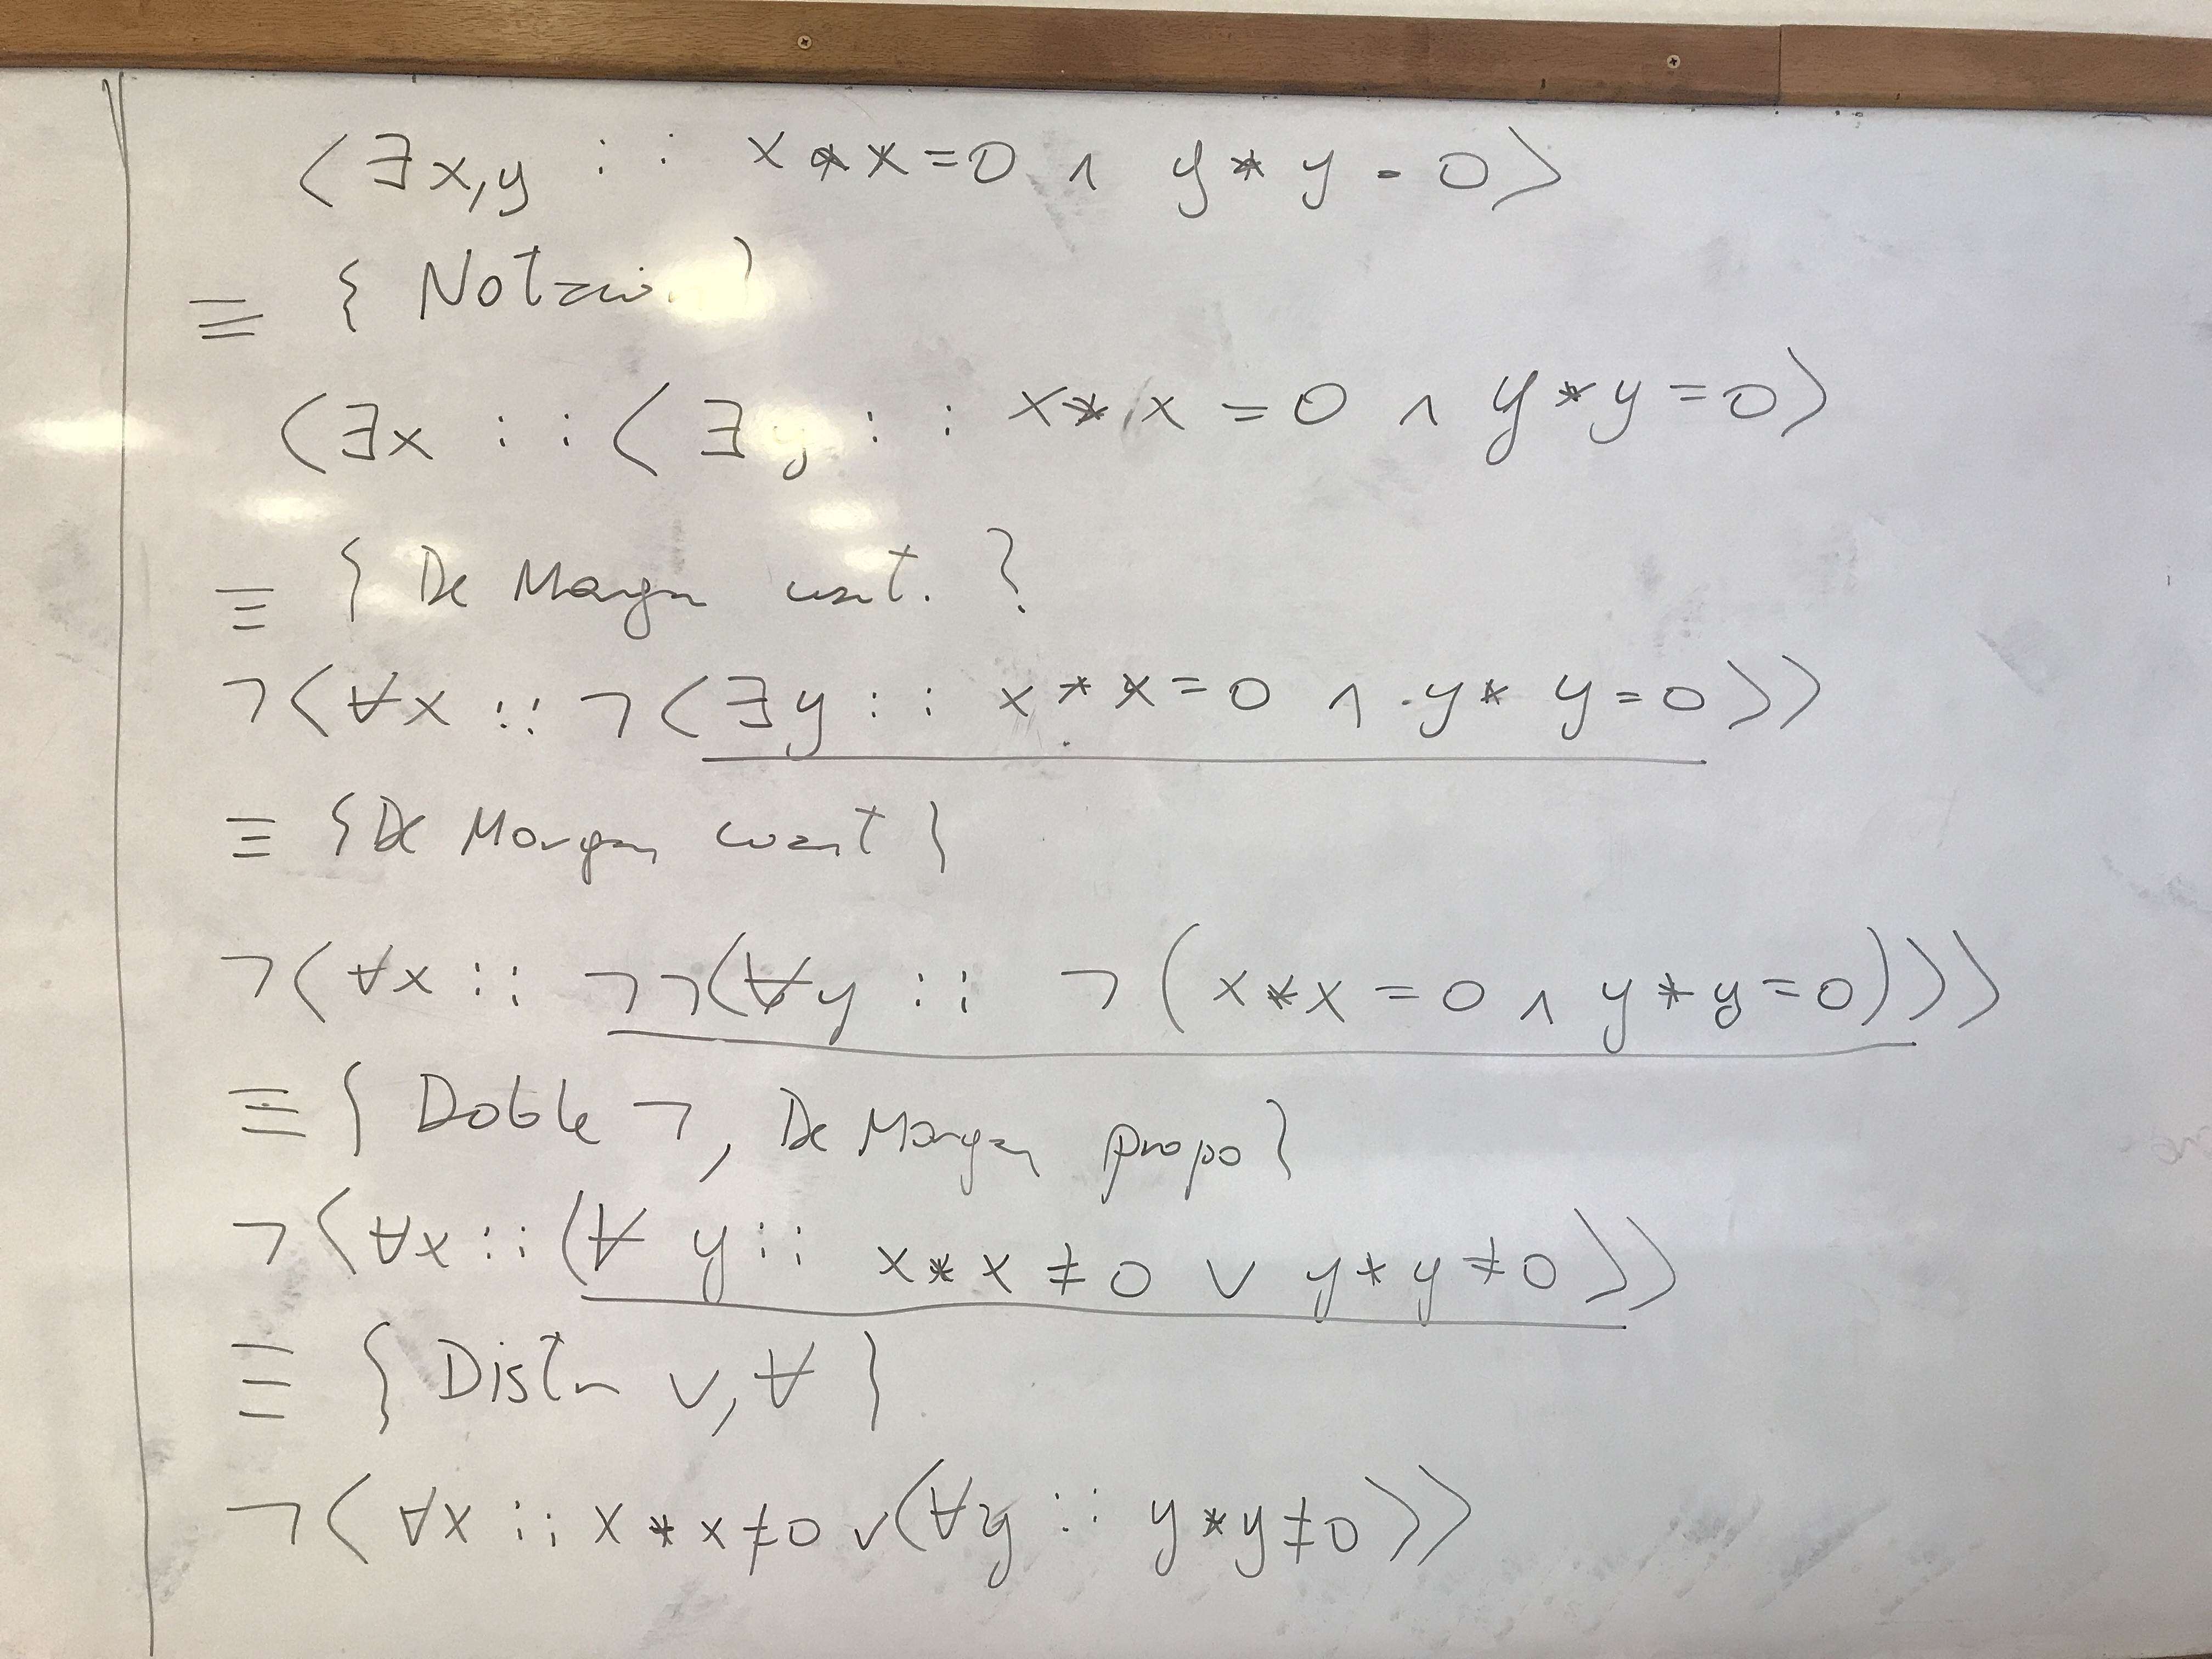 ⟨∃x,y : : x*x=0 ∧ y*y=0⟩
≡ {
⟨∃x : : ⟨∃y : : x*x=0 ∧ y*y=0⟩
≡ { De Morgan cuant. }
¬⟨∀x :: ¬⟨∃y : : x*x=0 ∧ y*y=0⟩⟩
≡ {De Morgan cuant}
¬⟨∀x :: ¬¬⟨∀y :: ¬(x*x=0 ∧ y*y=0)⟩⟩
≡ { Doble ¬, De Morgan propo}
¬⟨∀x::⟨∀y:: x*x≠0 ∨ y*y≠0⟩⟩
≡ { Distr ∨,∀ }
¬⟨∀x :: x*x≠0 ∨⟨∀y :: y*y≠0⟩⟩